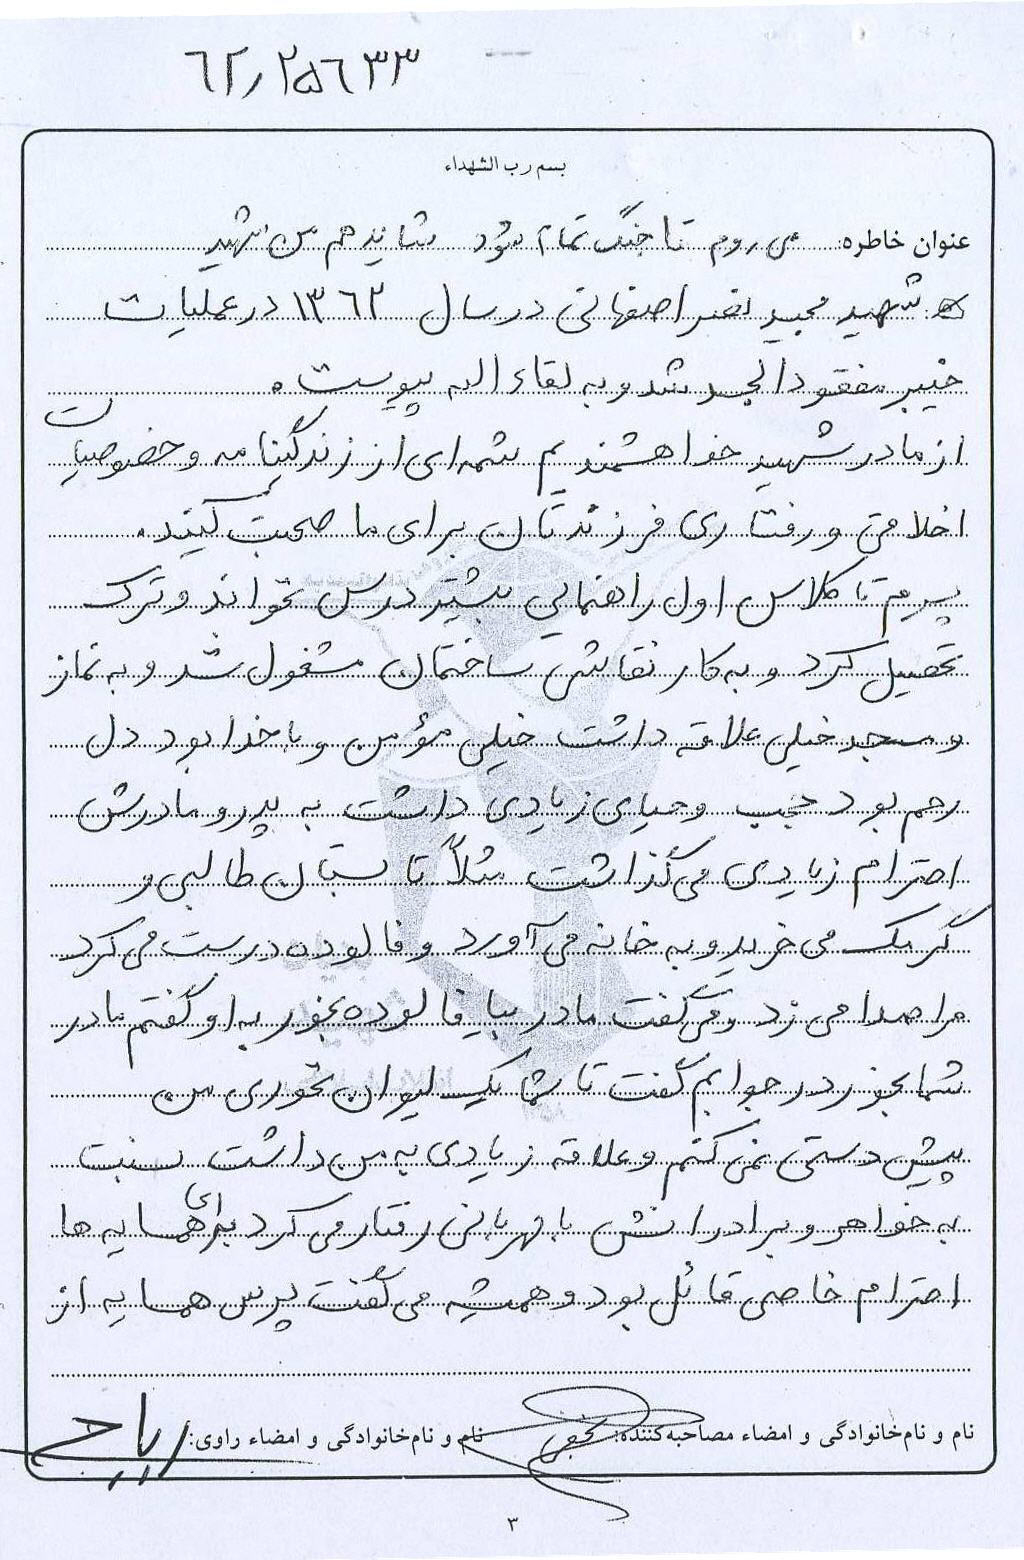 ۶۲٫۲۵۶۳۳
بسم رب الشهداء
عنوان خاطره: می روم تا جنگ تمام شود شاید هم من شهید
شهید مجید نصر اصفهانی در سال ۱۳۶۲ در عملیات
خیبر مفقودالجسد شد و به لقاء اله پیوست.
از مادر شهید خواهشمندیم شمه ای از زندگینامه و خصوصیات
اخلاقی و رفتاری فرزندتان برای ما صحبت کنید.
پسرم تا کلاس اول راهنمایی بیشتر درس نخواند و ترک
تحصیل کرد و به کار نقاشی ساختمان مشغول شد و به نماز
و مسجد خیلی علاقه داشت خیلی مؤمن و با خدا بود دل
رحم بود نجیب و حیای زیادی داشت به پدر و مادرش
احترام زیادی می گذاشت مثلاً تابستان طالبی و
گرمک می خرید و به خانه می آورد و فالوده درست می کرد
مرا صدا می زد و می گفت مادر بیا فالوده بخور به او گفتم مادر
شما بخور در جوابم گفت تا شما یک لیوان نخوری من
پیش دستی نمی کنم و علاقه زیادی به من داشت نسبت
به خواهر و برادرانش با مهربانی رفتار می کرد برای همسایه ها
احترام خاصی قائل بود و همیشه می گفت پرس همسایه از
نام و نام خانوادگی و امضاء مصاحبه کننده: نجفی نام و نام خانوادگی و امضاء راوی:
۳